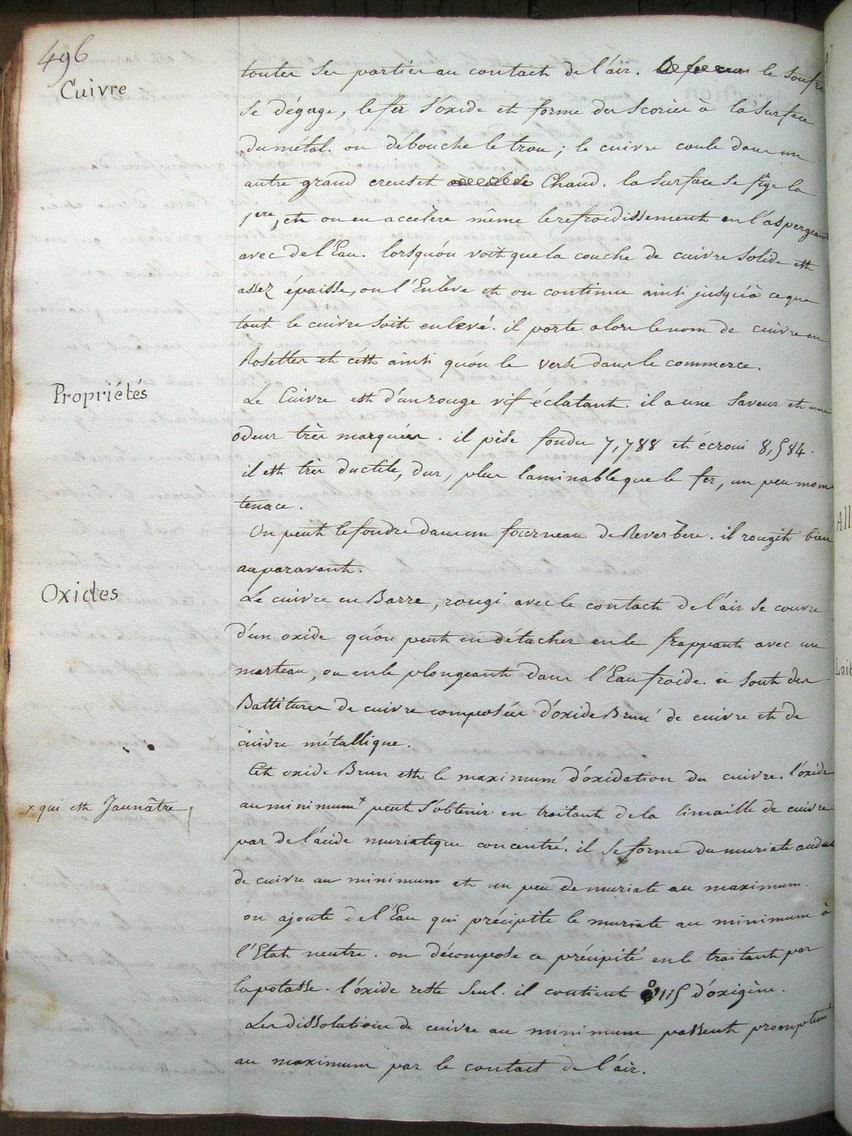 496
Cuivre
toutes ses parties au contact de l'air. le soufre
se dégage, le fer s'oxide et forme des scories à la surface
du métal. on debouche le trou ; le cuivre coule dans un
autre grand creuset chaud. la surface se fige la
1ere, et on en accelère même le refroidissement en l'aspergeant
avec de l'Eau. lorsqu'on voit que la couche de cuivre solide est
assez épaisse, on l'Enlève et on continue ainsi jusqu'à ce que
tout le cuivre soit enlevé. il porte alors le nom de cuivre en
Rosettes et c'est ainsi qu'on le vend dans le commerce.
Propriétés
Le Cuivre est d'un rouge vif eclatant. il a une saveur et une
odeur très marquées. il pèse fondu 7,788 et écroui 8,584.
il est très ductile, dur, plus laminable que le fer, un peu moins
tenace.
On peut le fondre dans un fourneau de Reverbère. il rougit bien
auparavant.
Oxides
Le cuivre en Barre, rougi avec le contact de l'air se couvre
d'un oxide qu'on peut en détacher en le frappant avec un
marteau, ou en le plongeant dans l'Eau froide. ce sont des
Battitures de cuivre composées d'oxide Brun de cuivre et de
cuivre métallique.
Cet oxide Brun est le maximum d'oxidation du cuivre. l'oxide
x qui est Jaunâtre
au minimum x peut s'obtenir en traitant de la limaille de cuivre
par de l'acide muriatique concentré. il se forme du muriate acide
de cuivre au minimum et un peu de muriate au maximum.
on ajoute de l'Eau qui précipite le muriate au minimum à
l'Etat neutre. on décompose ce précipité en le traitant par
la potasse. l'oxide reste seul. il contient 0,115 d'oxigène.
Les dissolutions de cuivre au minimum passent promptemt
au maximum par le contact de l'air.
All
Lait